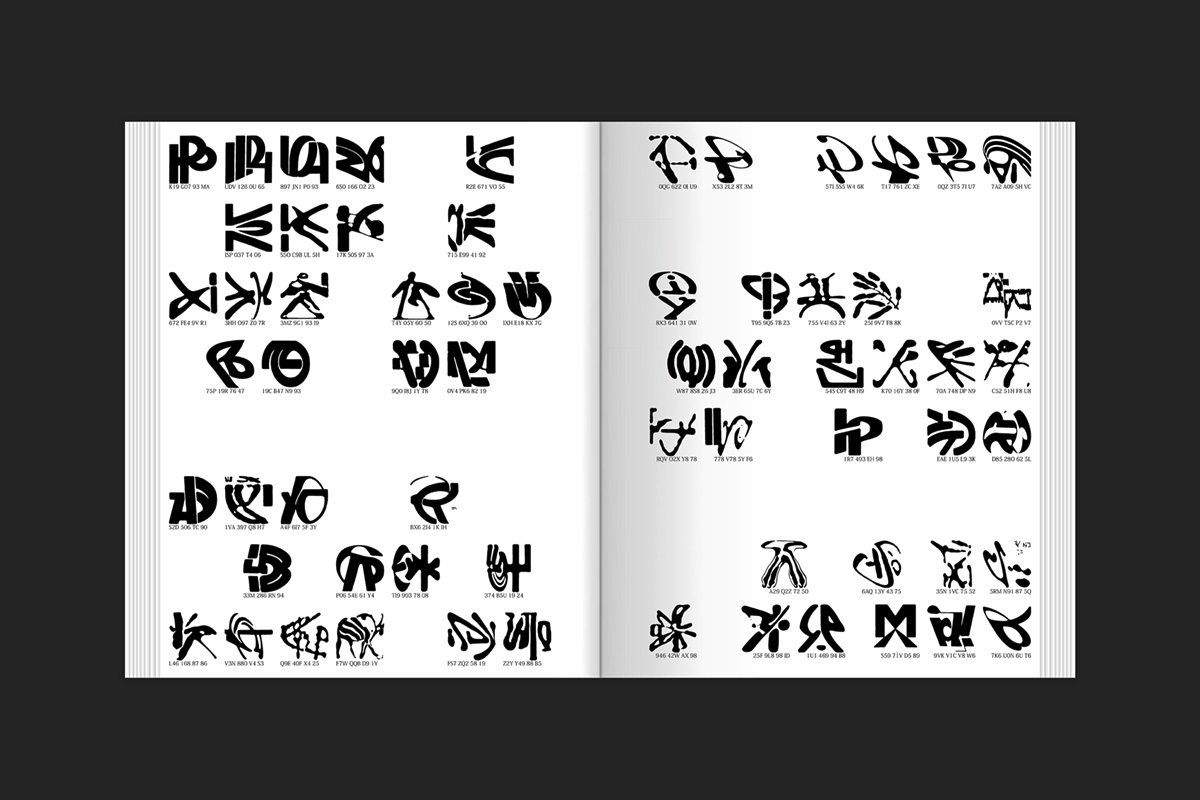 K19 GD7 93 MA UDV 126 0U 65 897 JN1 P0 93 650 166 O2 23 R2E 671 VO 55
ISP 037 T4 06 55O C9B UL 5H 17K 50S 97 3A 715 E99 41 92
672 FE4 9V R1 3HH O97 Z0 7R 3MZ 9G1 93 I9 T4Y 05Y 6O 50 12S 6XQ 39 O0 D0I E18 KX 7G
75P 19R 76 47 19C B47 N9 93 9Q0 0V4 PK6 82 19
S2D 506 TC 90 1VA 397 Q8 H7 A4F 6I7 5F 3Y BX6 2I4 1K IH
33M 286 RN 94 P06 54E 61 Y4 TI9 903 78 O8 374 B5U 19 24
L46 168 87 86 V3N 880 V4 S3 Q9E 40F X4 25 F7W QQB D9 1Y FS7 ZQ2 58 19 Z2Y Y49 88 B5
0QG 622 0I U9 X53 2L2 8T 3M 57I 5S5 W4 6K T17 761 ZC XE 0QZ 3T5 7I U7 7A2 A09 5H VC
8X3 641 31 0W T95 9Q5 7B Z3 755 V4I 63 2Y 25I 9V7 F8 8K 0VV T5C P2 V7
W87 858 26 J3 3ER 65U 7C 6Y 54S C9T 48 H9 K70 16Y 38 0F 70A 748 DP N9 C52 51H F8 U8
RQV O2X Y8 78 778 V78 5Y F6 1R7 493 EH 98 EAE 1U5 L9 3K D85 28O 62 5L
A29 Q2Z 72 50 6AQ 13Y 43 75 3SN 1VC 75 52 5RM N91 87 5Q
946 42W AX 98 25F 9L8 98 ID 1U1 469 94 B8 S59 7IV D5 89 9VK V1C V8 W6 7K6 U0N 6U T6